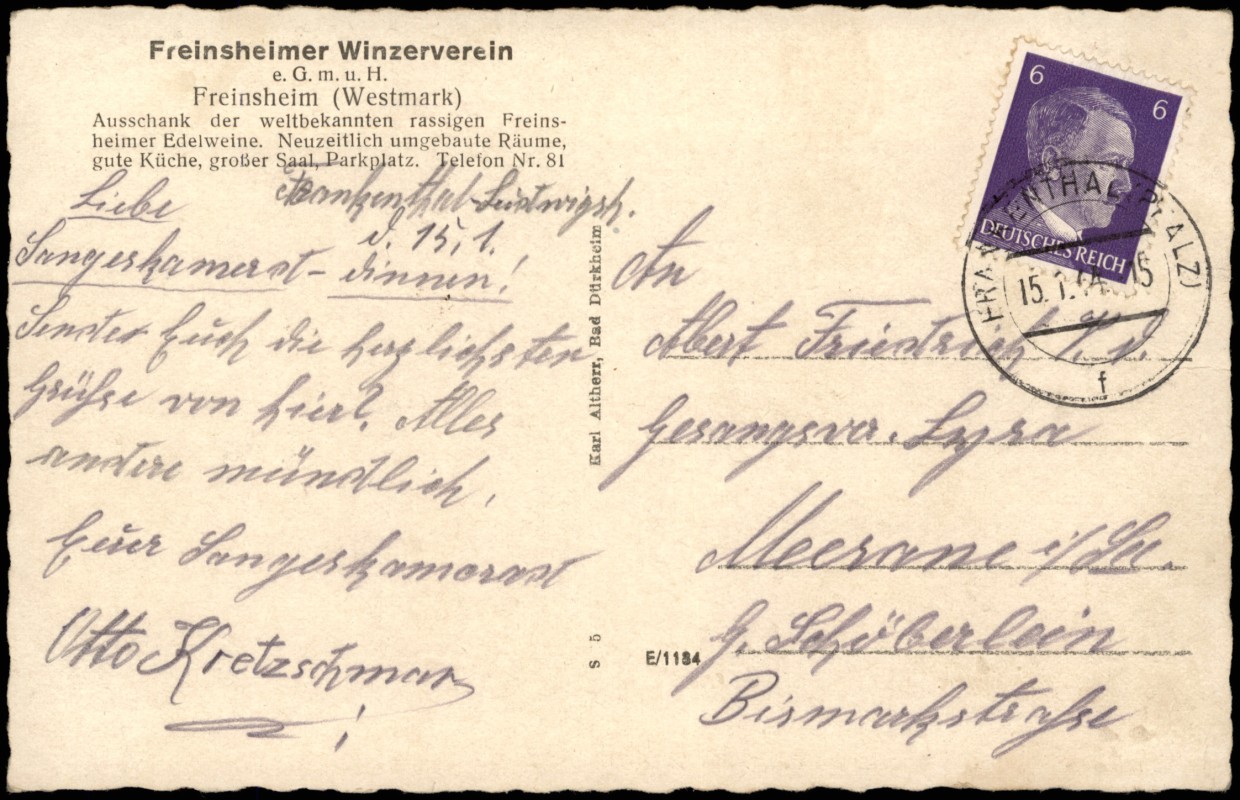 Freinsheimer Winzerverein
e. G. m. u. H.
Freinsheim (Westmark)
Ausschank der weltbekannten rassigen Freins-
heimer Edelweine. Neuzeitlich umgebaute Räume,
gute Küche, großer Saal, Parkplatz. Telefon Nr. 81
Frankenthal-Ludwigsh.
d. 15.1.
Liebe
Sangeskamerad-dinnen!
Sendet Euch die herzlichsten
Grüße von hier. Alles
andere mündlich.
Euer Sangeskamerad
Otto Kretzschmar
Karl Altherr, Bad Dürkheim
S 5
E/1184
6 6
DEUTSCHES REICH
FRANKENTHAL (PFALZ)
15.1. 15
f
An
Albert Friedrich
Gesangsver. Lyra
Meerane i/Sa.
G. Schöberlein
Bismarkstraße